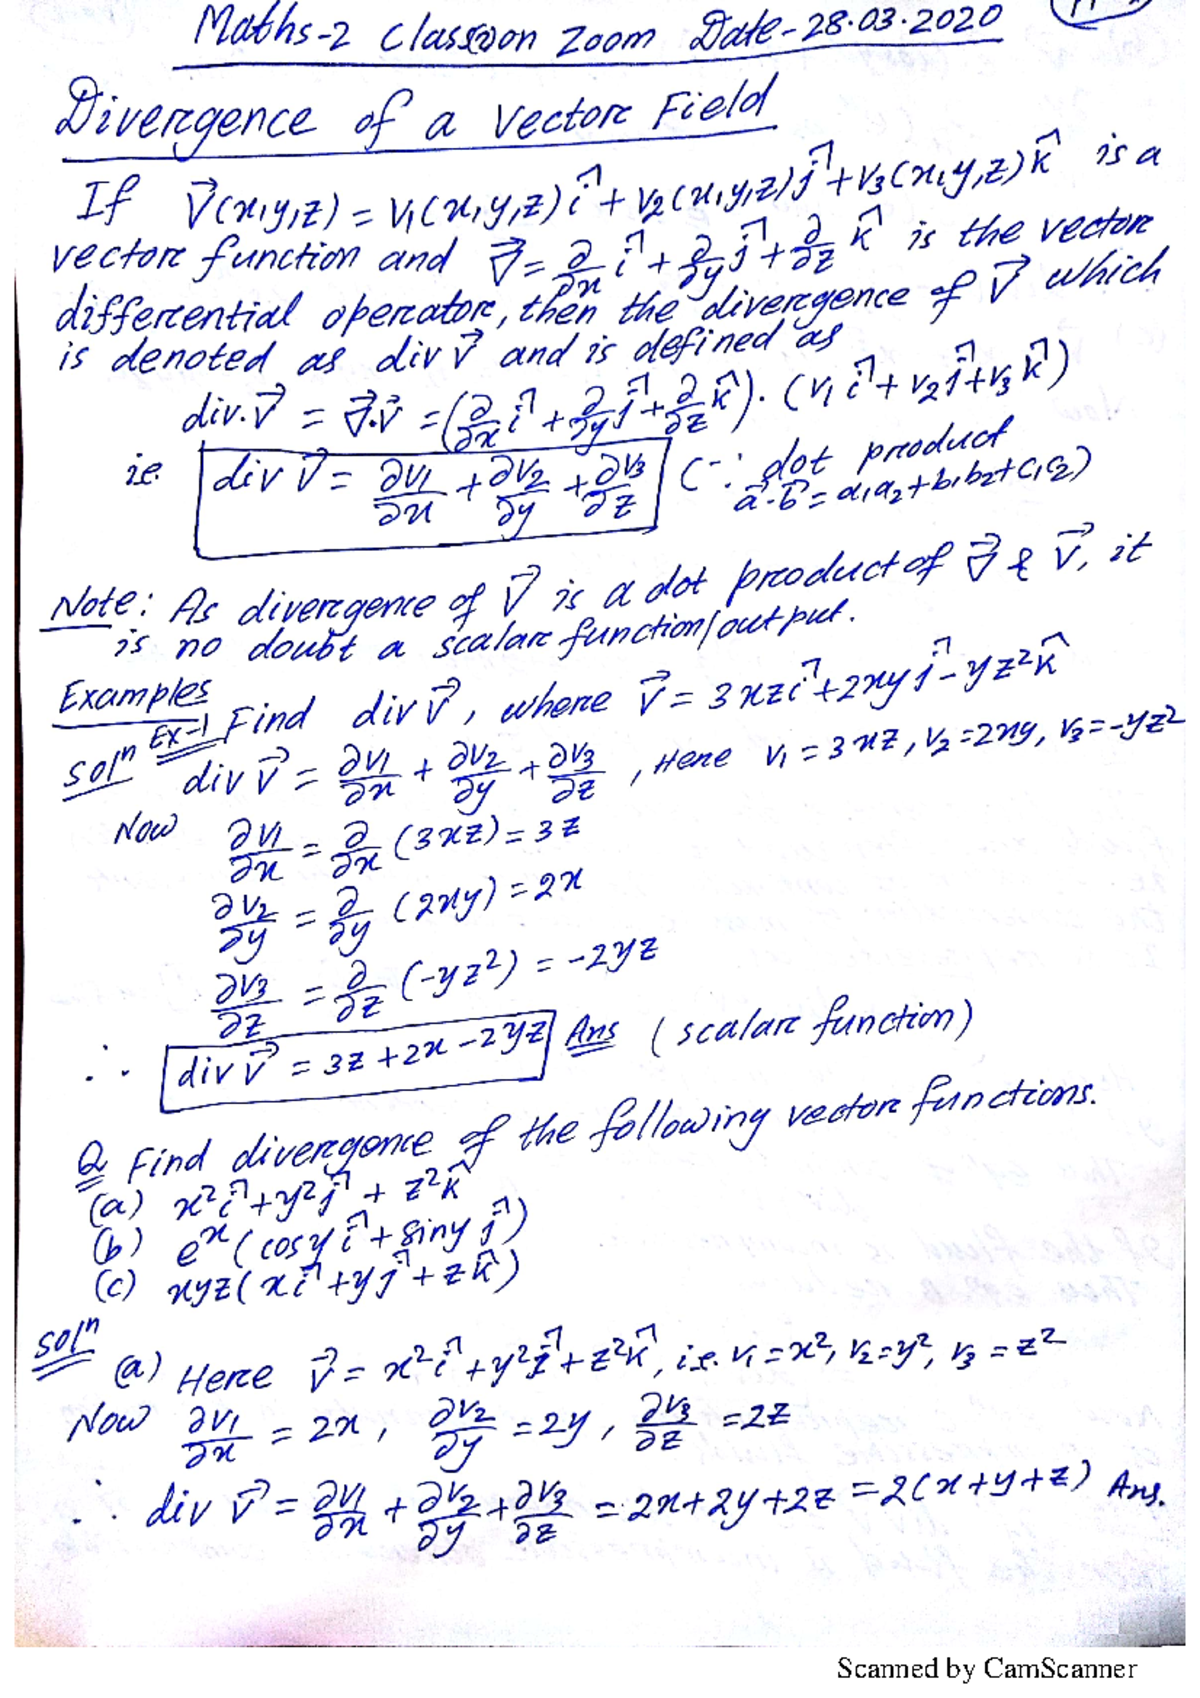 Maths-2 Classroon Zoom Date-28.03.2020
Divergence of a Vector Field
If V⃗(x,y,z) = v₁(x,y,z) î + v₂(x,y,z) ĵ + v₃(x,y,z) k̂ is a
vector function and ∇⃗ = ∂/∂x î + ∂/∂y ĵ + ∂/∂z k̂ is the vector
differential operator, then the divergence of V⃗ which
is denoted as div V⃗ and is defined as
div.V⃗ = ∇⃗.V⃗ = (∂/∂x î + ∂/∂y ĵ + ∂/∂z k̂). (v₁ î + v₂ ĵ + v₃ k̂)
ie. div V⃗ = ∂v₁/∂x + ∂v₂/∂y + ∂v₃/∂z (∵ dot product
a⃗.b⃗ = a₁a₂+b₁b₂+c₁c₂)
Note: As divergence of V⃗ is a dot product of ∇⃗ & V⃗, it
is no doubt a scalar function/output.
Examples
Ex-1 Find div V⃗, where V⃗ = 3xz î + 2xy ĵ - yz² k̂
Solⁿ div V⃗ = ∂v₁/∂x + ∂v₂/∂y + ∂v₃/∂z, Here v₁ = 3xz, v₂ = 2xy, v₃ = -yz²
Now ∂v₁/∂x = ∂/∂x (3xz) = 3z
∂v₂/∂y = ∂/∂y (2xy) = 2x
∂v₃/∂z = ∂/∂z (-yz²) = -2yz
∴ div V⃗ = 3z + 2x - 2yz Ans (scalar function)
Q Find divergence of the following vector functions.
(a) x² î + y² ĵ + z² k̂
(b) eˣ (cosy î + siny ĵ)
(c) xyz(x î + y ĵ + z k̂)
Solⁿ
(a) Here V⃗ = x² î + y² ĵ + z² k̂, i.e. v₁ = x², v₂ = y², v₃ = z²
Now ∂v₁/∂x = 2x, ∂v₂/∂y = 2y, ∂v₃/∂z = 2z
∴ div V⃗ = ∂v₁/∂x + ∂v₂/∂y + ∂v₃/∂z = 2x+2y+2z = 2(x+y+z) Ans.
Scanned by CamScanner